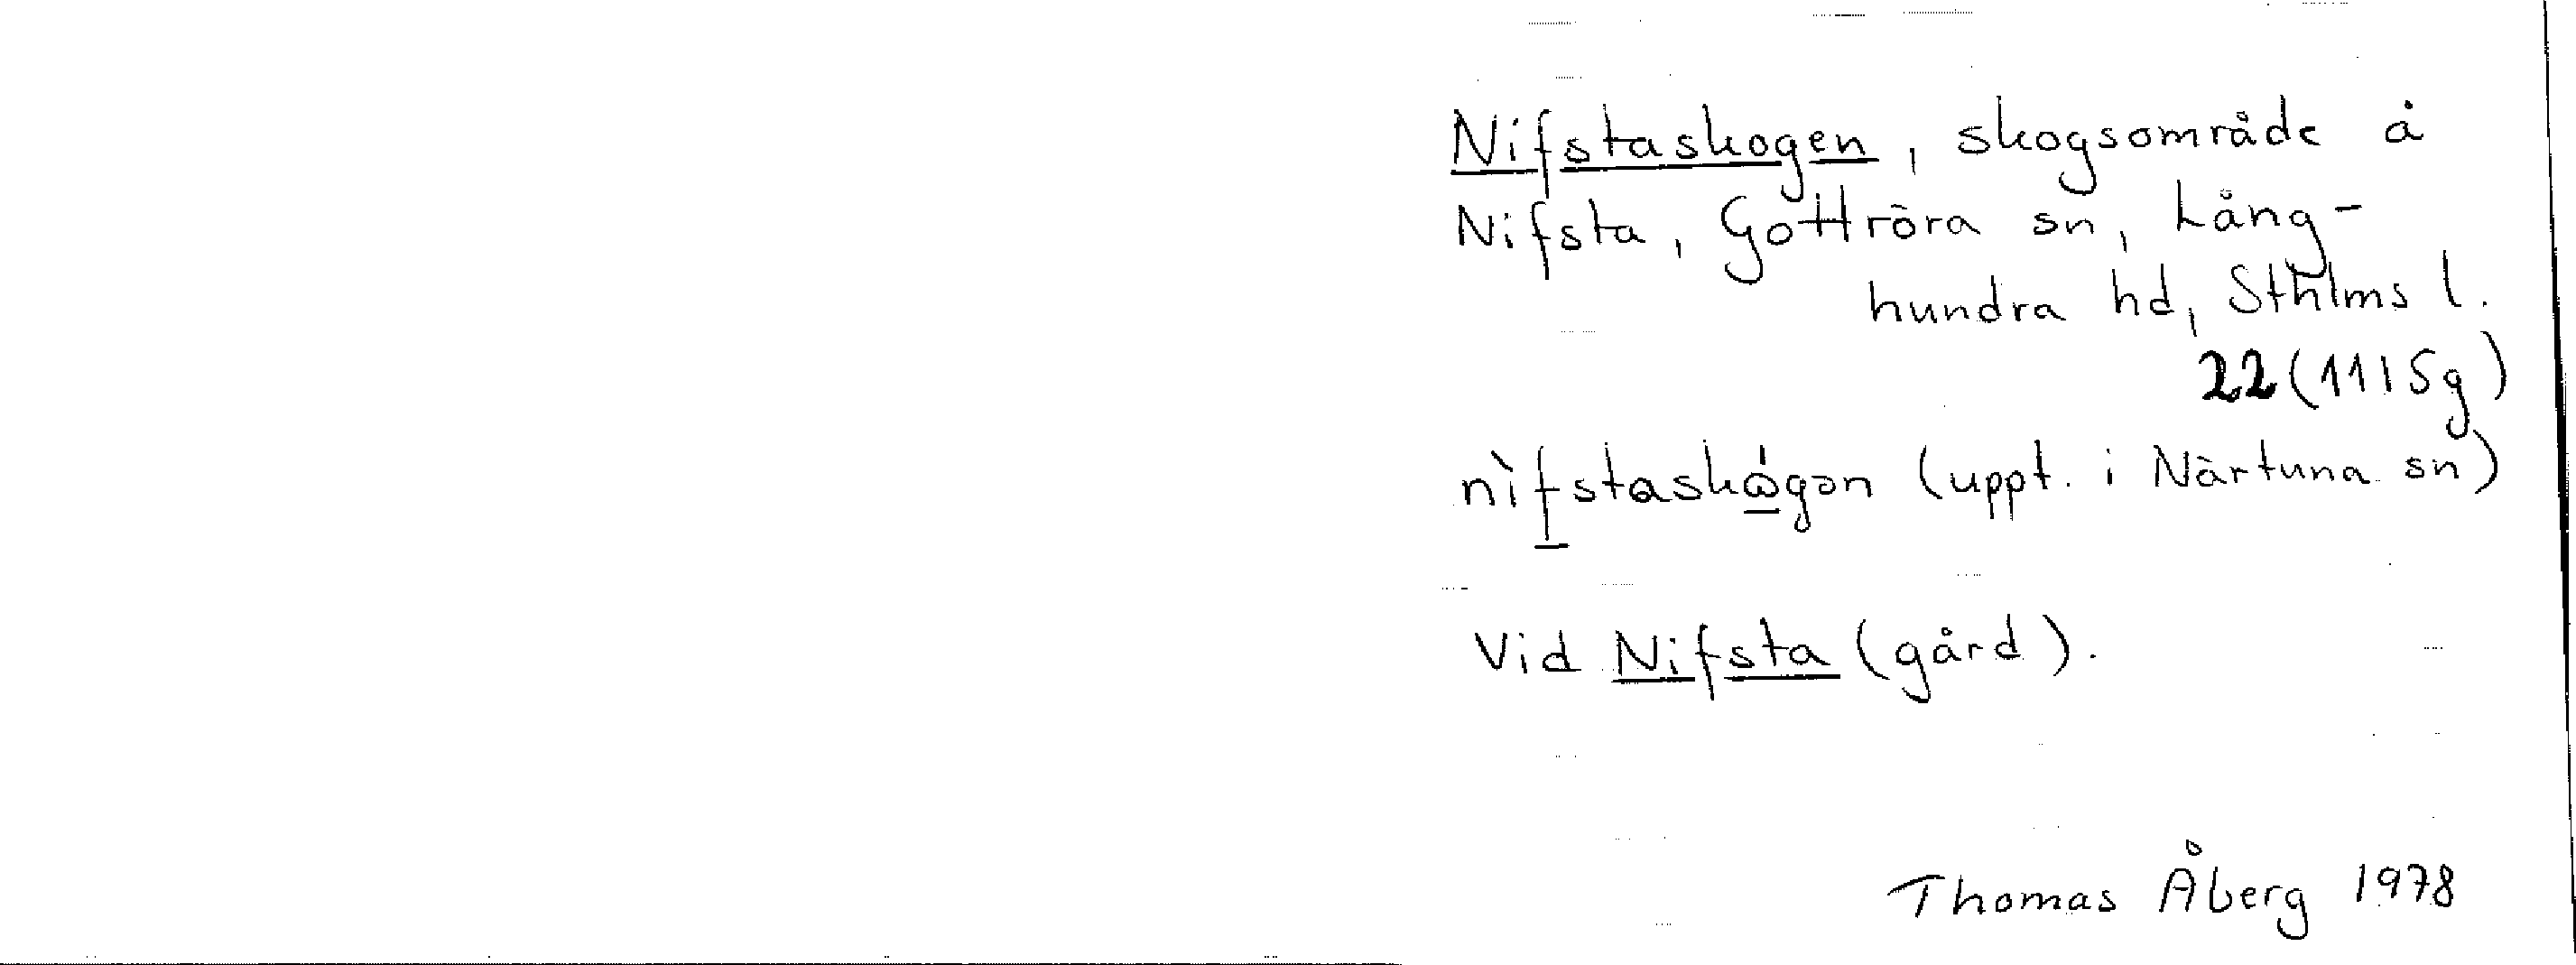 Nifstaskogen, skogsområde å
Nifsta, Gottröra sn, Lång-
hundra hd, Sthlms l.
22 (11I 5g)
nìfstaskⱷ́gən (uppt. i Närtuna sn)
Vid Nifsta (gård).
Thomas Åberg 1978